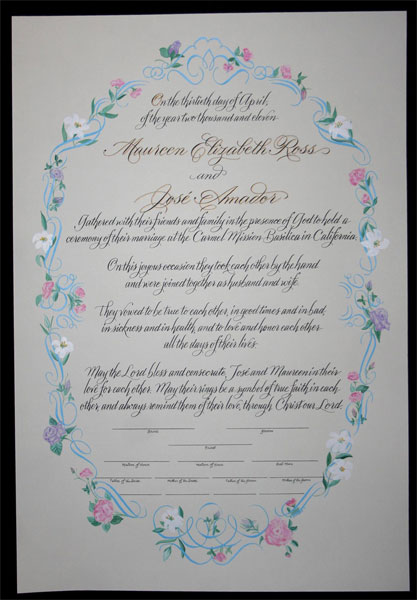 On the thirtieth day of April,
of the year two thousand and eleven
Maureen Elizabeth Ross
and
José Amador
Gathered with their friends and family in the presence of God to hold a
ceremony of their marriage at the Carmel Mission Basilica in California.
On this joyous occasion they took each other by the hand
and were joined together as husband and wife.
They vowed to be true to each other, in good times and in bad,
in sickness and in health, and to love and honor each other
all the days of their lives.
May the Lord bless and consecrate, José and Maureen in their
love for each other. May their rings be a symbol of true faith in each
other and always remind them of their love, through Christ our Lord.
Priest
Matron of Honor Matron of Honor Best Man
Father of the Bride Mother of the Bride Father of the Groom Mother of the Groom